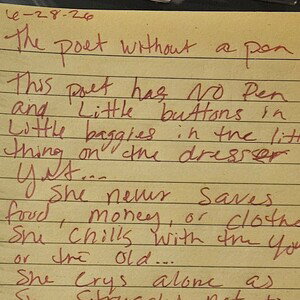 6-28-26
The poet without a pen
This poet has NO Pen
and Little buttons in
Little baggies in the litt
thing on the dresser
Yet...
She never saves
food, money, or cloth
She chills with the yo
or the old...
She crys alone as